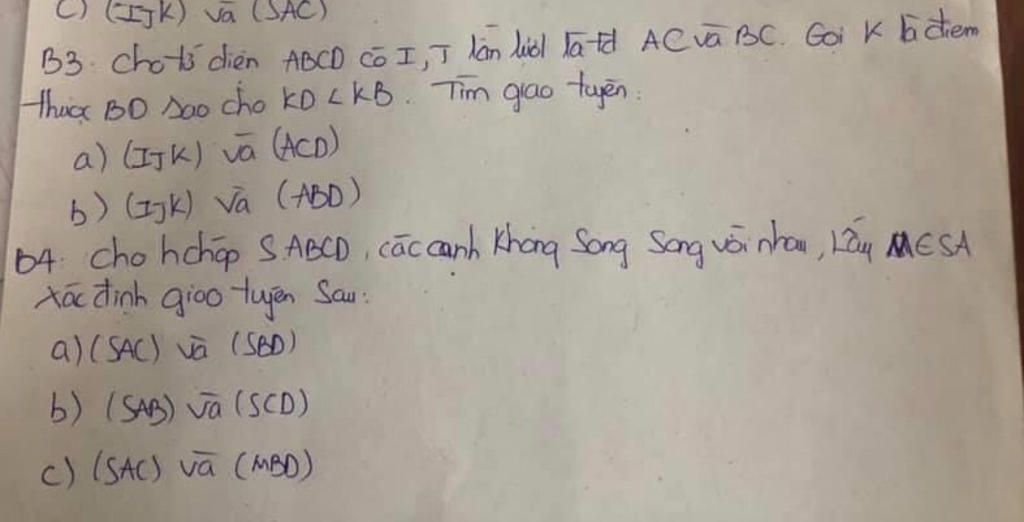 c) (IJK) và (SAC)
B3. Cho tứ diện ABCD có I, J lần lượt là tđ AC và BC. Gọi K là điểm
thuộc BD sao cho KD < KB. Tìm giao tuyến:
a) (IJK) và (ACD)
b) (IJK) và (ABD)
B4. Cho hchóp S.ABCD, các cạnh không song song với nhau, Lấy M ∈ SA
Xác định giao tuyến sau:
a) (SAC) và (SBD)
b) (SAB) và (SCD)
c) (SAC) và (MBD)